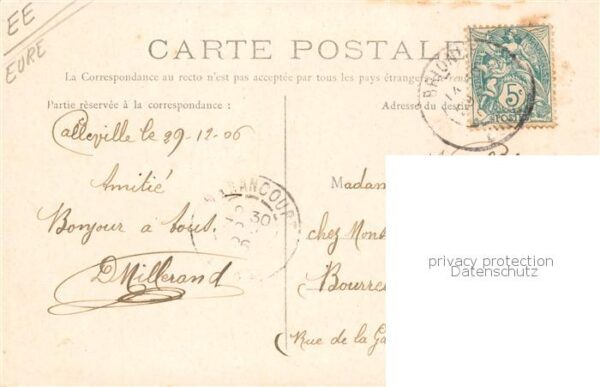 EE
EURE
CARTE POSTALE
La Correspondance au recto n'est pas acceptée par tous les pays étrangers
Partie réservée à la correspondance :
Adresse du destin
Calleville le 29-12-06
Amitié
Bonjour à tous.
D Millerand
Madam
chez Mons
Bourre
Rue de la Ga
BRIONN
5c
POST
30
06
privacy protection
Datenschutz